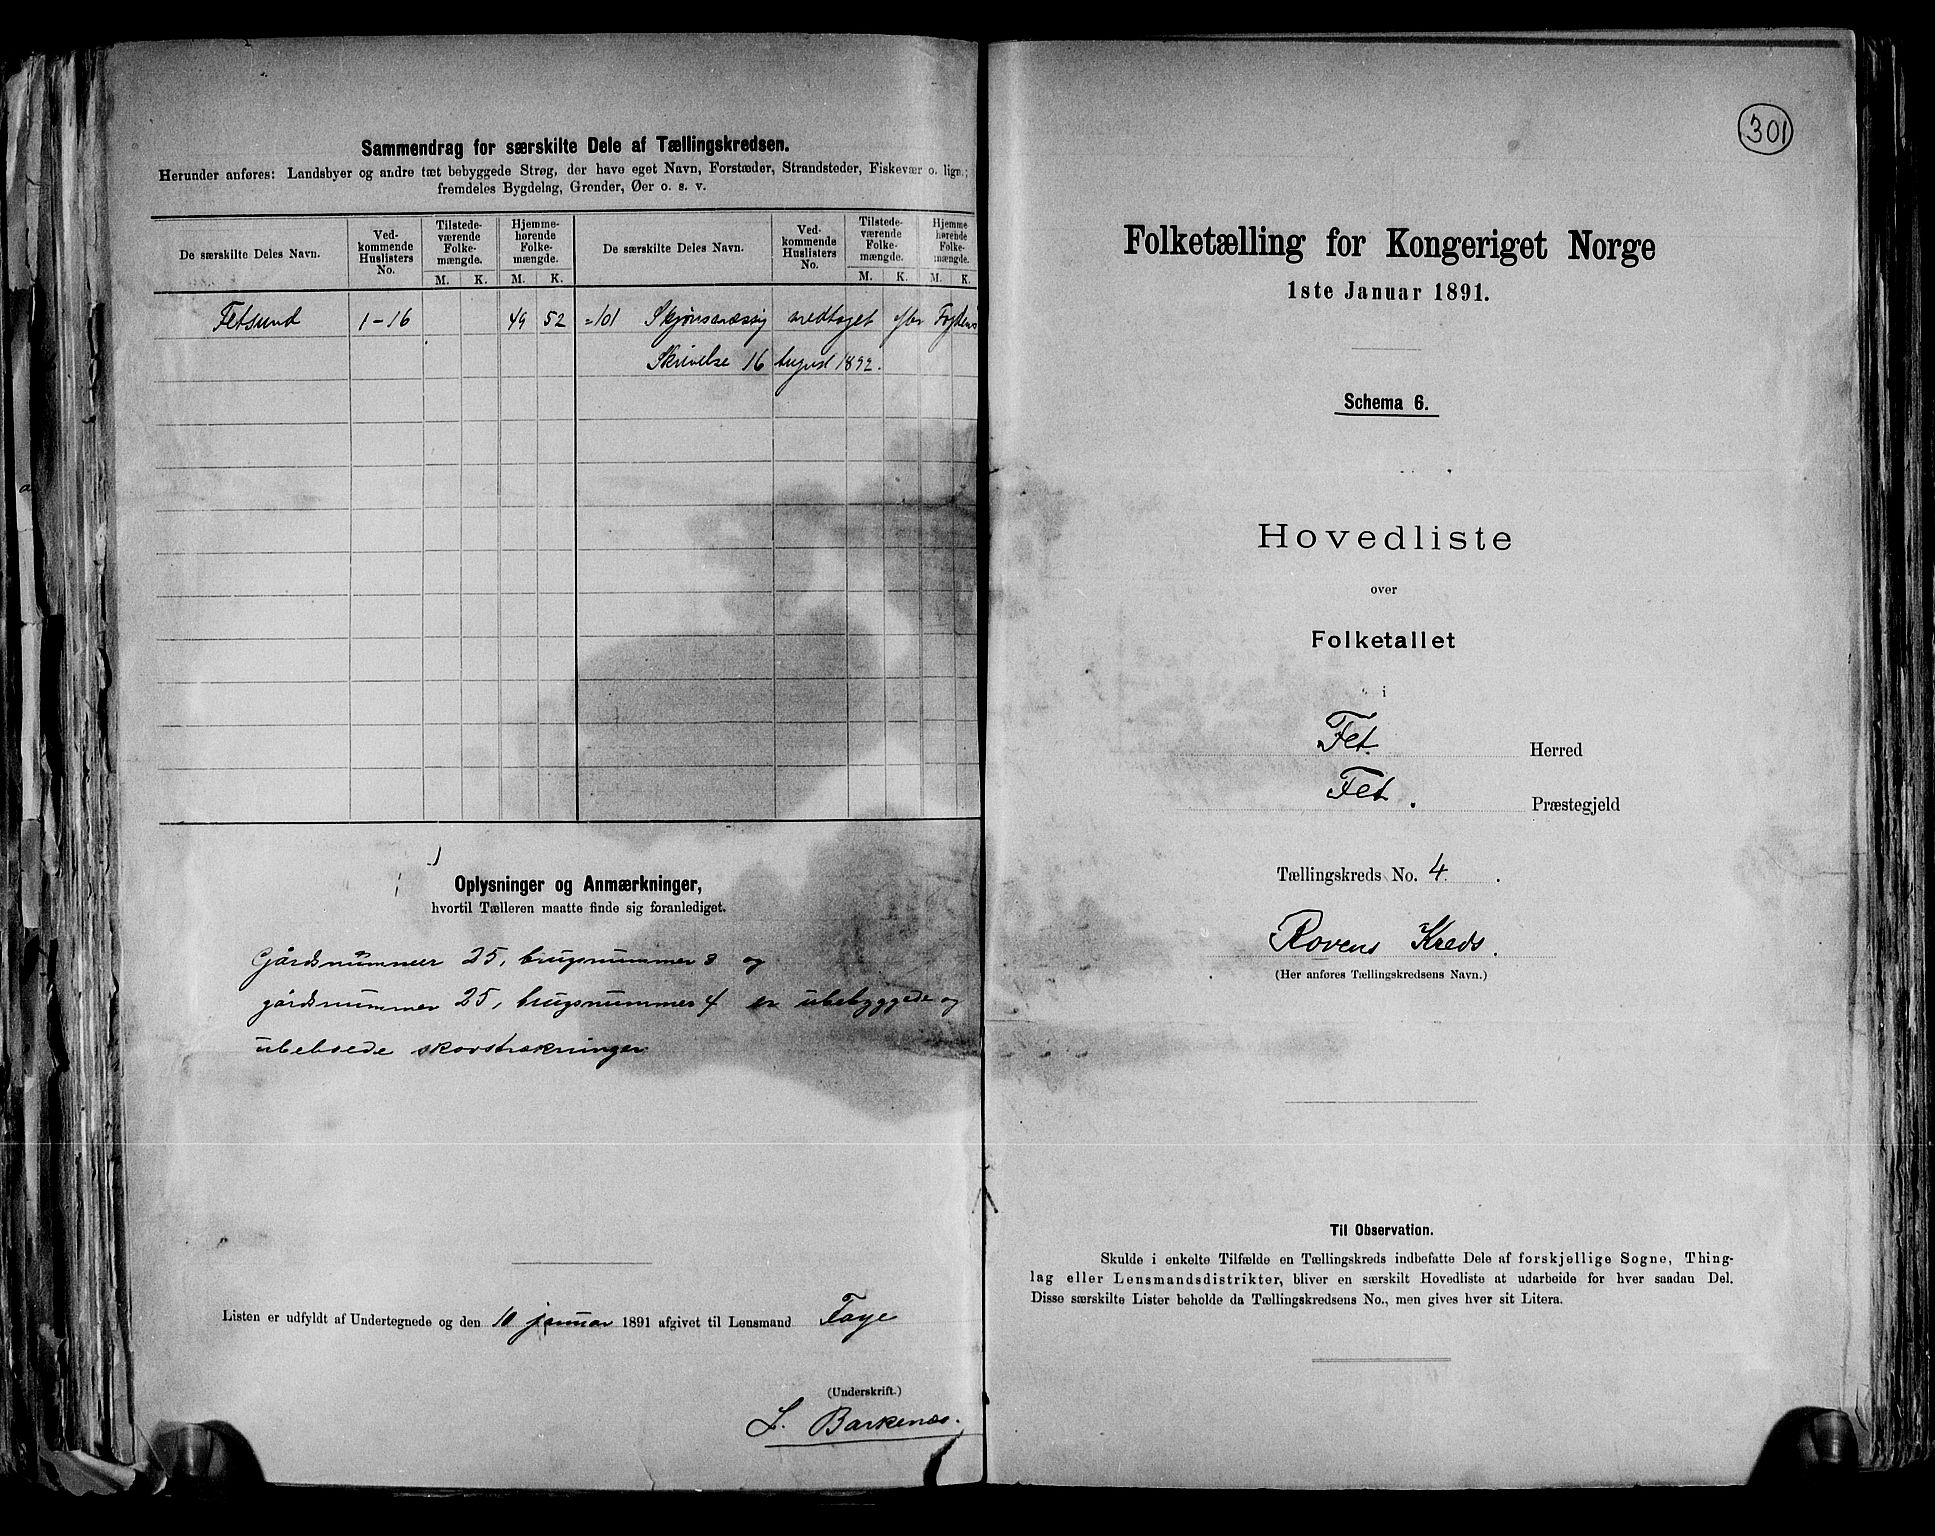 Sammendrag for særskilte Dele af Tællingskredsen.
Herunder anføres: Landsbyer og andre tæt bebyggede Strøg, der have eget Navn, Forstæder, Strandsteder, Fiskevær o. lign.;
fremdeles Bygdelag, Grender, Øer o. s. v.
De særskilte Deles Navn. Ved-kommende Huslisters No. Tilstede-værende Folke-mængde. Hjemme-hørende Folke-mængde. De særskilte Deles Navn. Ved-kommende Huslisters No. Tilstede-værende Folke-mængde. Hjemme-hørende Folke-mængde.
M. K. M. K. M. K. M. K.
Fetsund 1-16 49 52 =101 Skjønsmæssig medtaget efter Fogdens
Skrivelse 16 August 1892.
Oplysninger og Anmærkninger,
hvortil Tælleren maatte finde sig foranlediget.
Gårdsnummer 25, brugsnummer 3 og
gårdsnummer 25, brugsnummer 4 er ubebyggede og
ubeboede skovstrækninger
Listen er udfyldt af Undertegnede og den 10 januar 1891 afgivet til Lensmand Faye
(Underskrift.)
L. Barkenæs.
301
Folketælling for Kongeriget Norge
1ste Januar 1891.
Schema 6.
Hovedliste
over
Folketallet
i
Fet Herred
Fet. Præstegjeld
Tællingskreds No. 4.
Rovens Kreds.
(Her anføres Tællingskredsens Navn.)
Til Observation.
Skulde i enkelte Tilfælde en Tællingskreds indbefatte Dele af forskjellige Sogne, Thing-
lag eller Lensmandsdistrikter, bliver en særskilt Hovedliste at udarbeide for hver saadan Del.
Disse særskilte Lister beholde da Tællingskredsens No., men gives hver sit Litera.